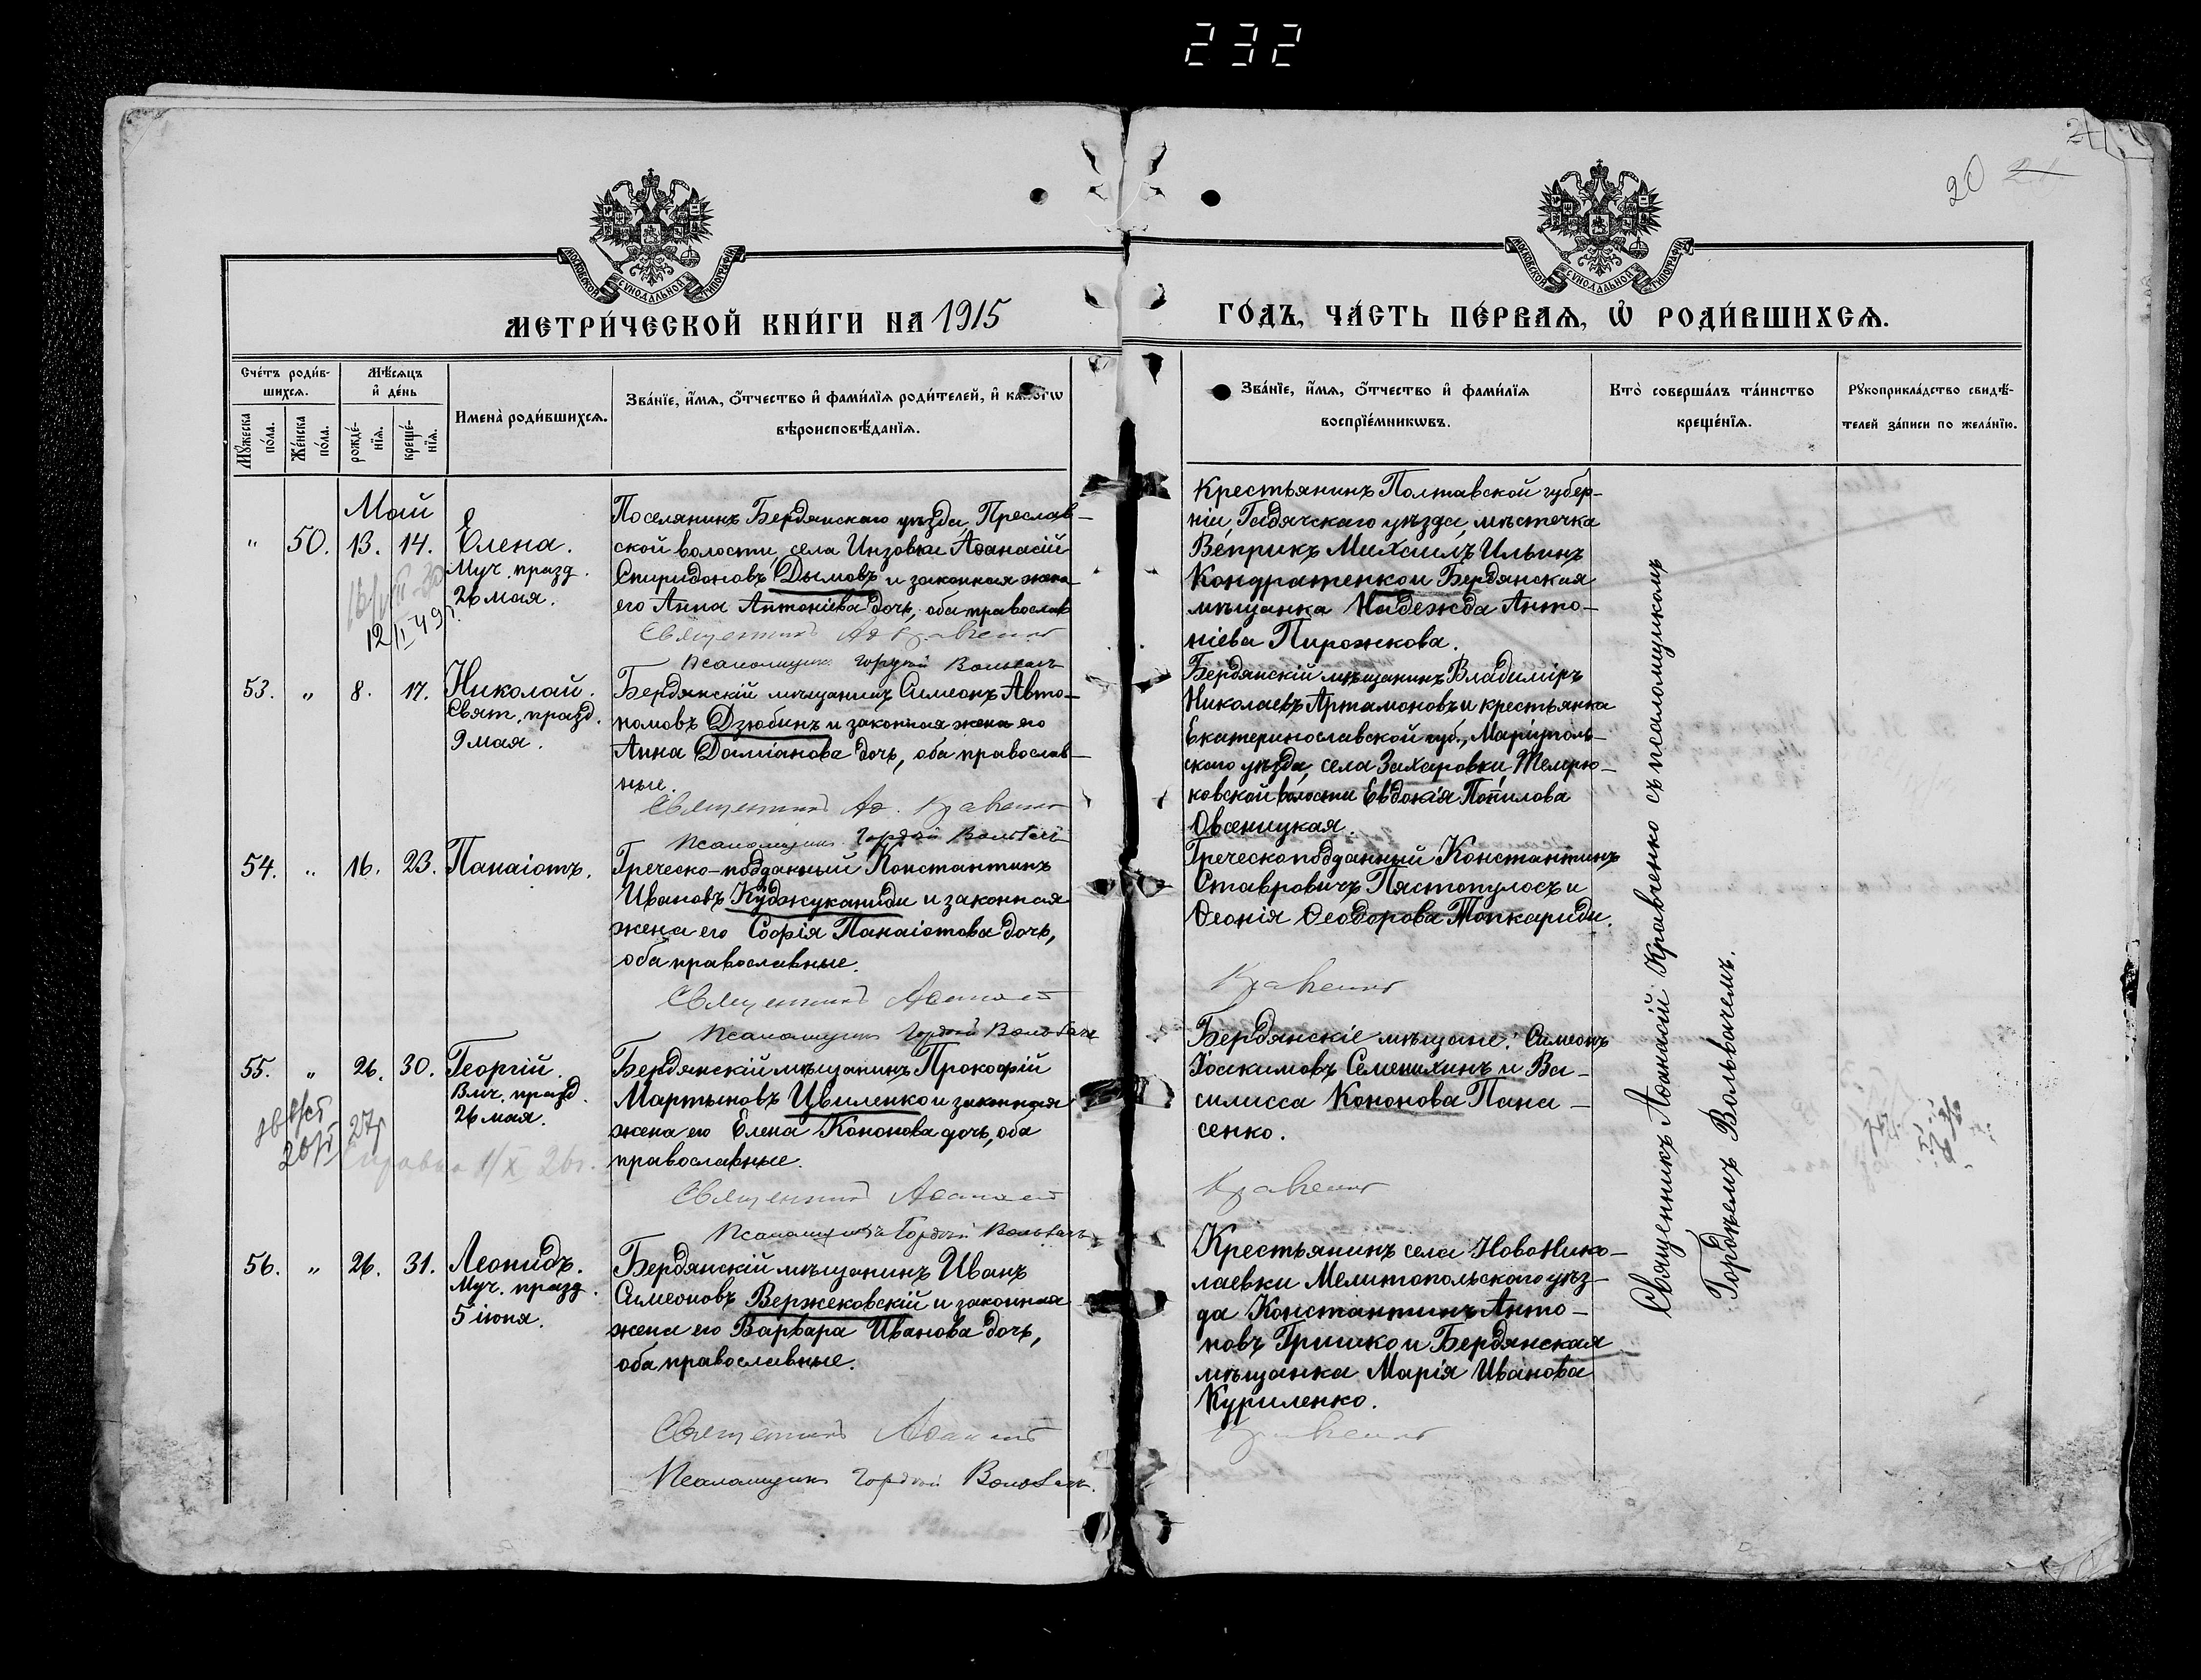 232
24
20 21
МОСКОВСКОЙ СУНОДАЛЬНОЙ ТИПОГРАФІИ
МОСКОВСКОЙ СУНОДАЛЬНОЙ ТИПОГРАФІИ
МЕТРИ́ЧЕСКОЙ КНИ́ГИ НА 1915
ГО́ДЪ, ЧА́СТЬ ПЕ́РВАѦ, Ѡ҆ РОДИ́ВШИХСѦ.
Сче́тъ роди́в-
шихсѧ.
Мꙋ́жеска
по́ла.
Же́нска
по́ла.
Мѣ́сѧцъ
и҆ де́нь
рожде́-
нїѧ.
креще́-
нїѧ.
Имена̀ роди́вшихсѧ.
Зва́нїе, и҆́мѧ, ѻ҆́тчество и҆ фами́лїѧ роди́телей, и҆ како́гѡ
вѣроисповѣ́данїѧ.
Зва́нїе, и҆́мѧ, ѻ҆́тчество и҆ фами́лїѧ
воспрїе́мникѡвъ.
Кто̀ соверша́лъ та́инство
креще́нїѧ.
Рꙋкоприкла́дство свидѣ́-
телей за́писи по жела́нїю.
Май
" 50. 13. 14. Елена.
Муч. празд.
26 мая.
12/II 49 г.
Поселянинъ Бердянскаго уѣзда, Преслав-
ской волости, села Инзовки Аѳанасій
Спиридоновъ Дымовъ и законная жена
его Анна Антоніева дочь, оба православ
Священникъ Аѳ Кравченко
Псаломщикъ Гордѣй Вольвачъ
Крестьянинъ Полтавской губер-
ніи, Гадячскаго уѣзда, мѣстечка
Веприкъ Михаилъ Ильинъ
Кондратенко и Бердянская
мѣщанка Надежда Анто-
ніева Пирожкова.
53. " 8. 17. Николай.
Свят. празд.
9 мая.
Бердянскій мѣщанинъ Симеонъ Авто-
номовъ Дзюбинъ и законная жена его
Анна Даміанова дочь, оба православ-
ные.
Священникъ Аѳ. Кравченко
Псаломщикъ Гордѣй Вольвачъ
Бердянскій мѣщанинъ Владиміръ
Николаевъ Артамоновъ и крестьянка
Екатеринославской губ., Маріуполь-
скаго уѣзда, села Захаровки Темрю-
ковской волости Евдокія Попилова
Овсеницкая.
54. " 16. 23. Панаіотъ.
Греческо-подданный Константинъ
Ивановъ Куджуканиди и законная
жена его Софія Панаіотова дочь,
оба православные.
Священникъ Аѳанасій
Псаломщикъ Гордѣй Вольвачъ
Греческоподданный Константинъ
Ставровичъ Пястопулосъ и
Ѳеонія Ѳеодорова Топкариди.
Кравченко
55. " 26. 30. Георгій.
Влмч. празд.
26 мая.
27 г.
1/X 26 г.
Бердянскій мѣщанинъ Прокофій
Мартыновъ Цвиленко и законная
жена его Елена Кононова дочь, оба
православные.
Священникъ Аѳанасій
Псаломщикъ Гордѣй Вольвачъ
Бердянскіе мѣщане: Симеонъ
Іоакимовъ Семенихинъ и Ва-
силисса Кононова Пана-
сенко.
Кравченко
56. " 26. 31. Леонидъ.
Муч. празд.
5 іюня.
Бердянскій мѣщанинъ Иванъ
Симеоновъ Вержековскій и законная
жена его Варвара Иванова дочь,
оба православные.
Священникъ Аѳанасій
Псаломщикъ Гордѣй Вольвачъ.
Крестьянинъ села НовоНико-
лаевки Мелитопольскаго уѣз-
да Константинъ Анто-
новъ Гришко и Бердянская
мѣщанка Марія Иванова
Куриленко.
Кравченко
Священникъ Аѳанасій Кравченко съ псаломщикомъ
Гордѣемъ Вольвачемъ.